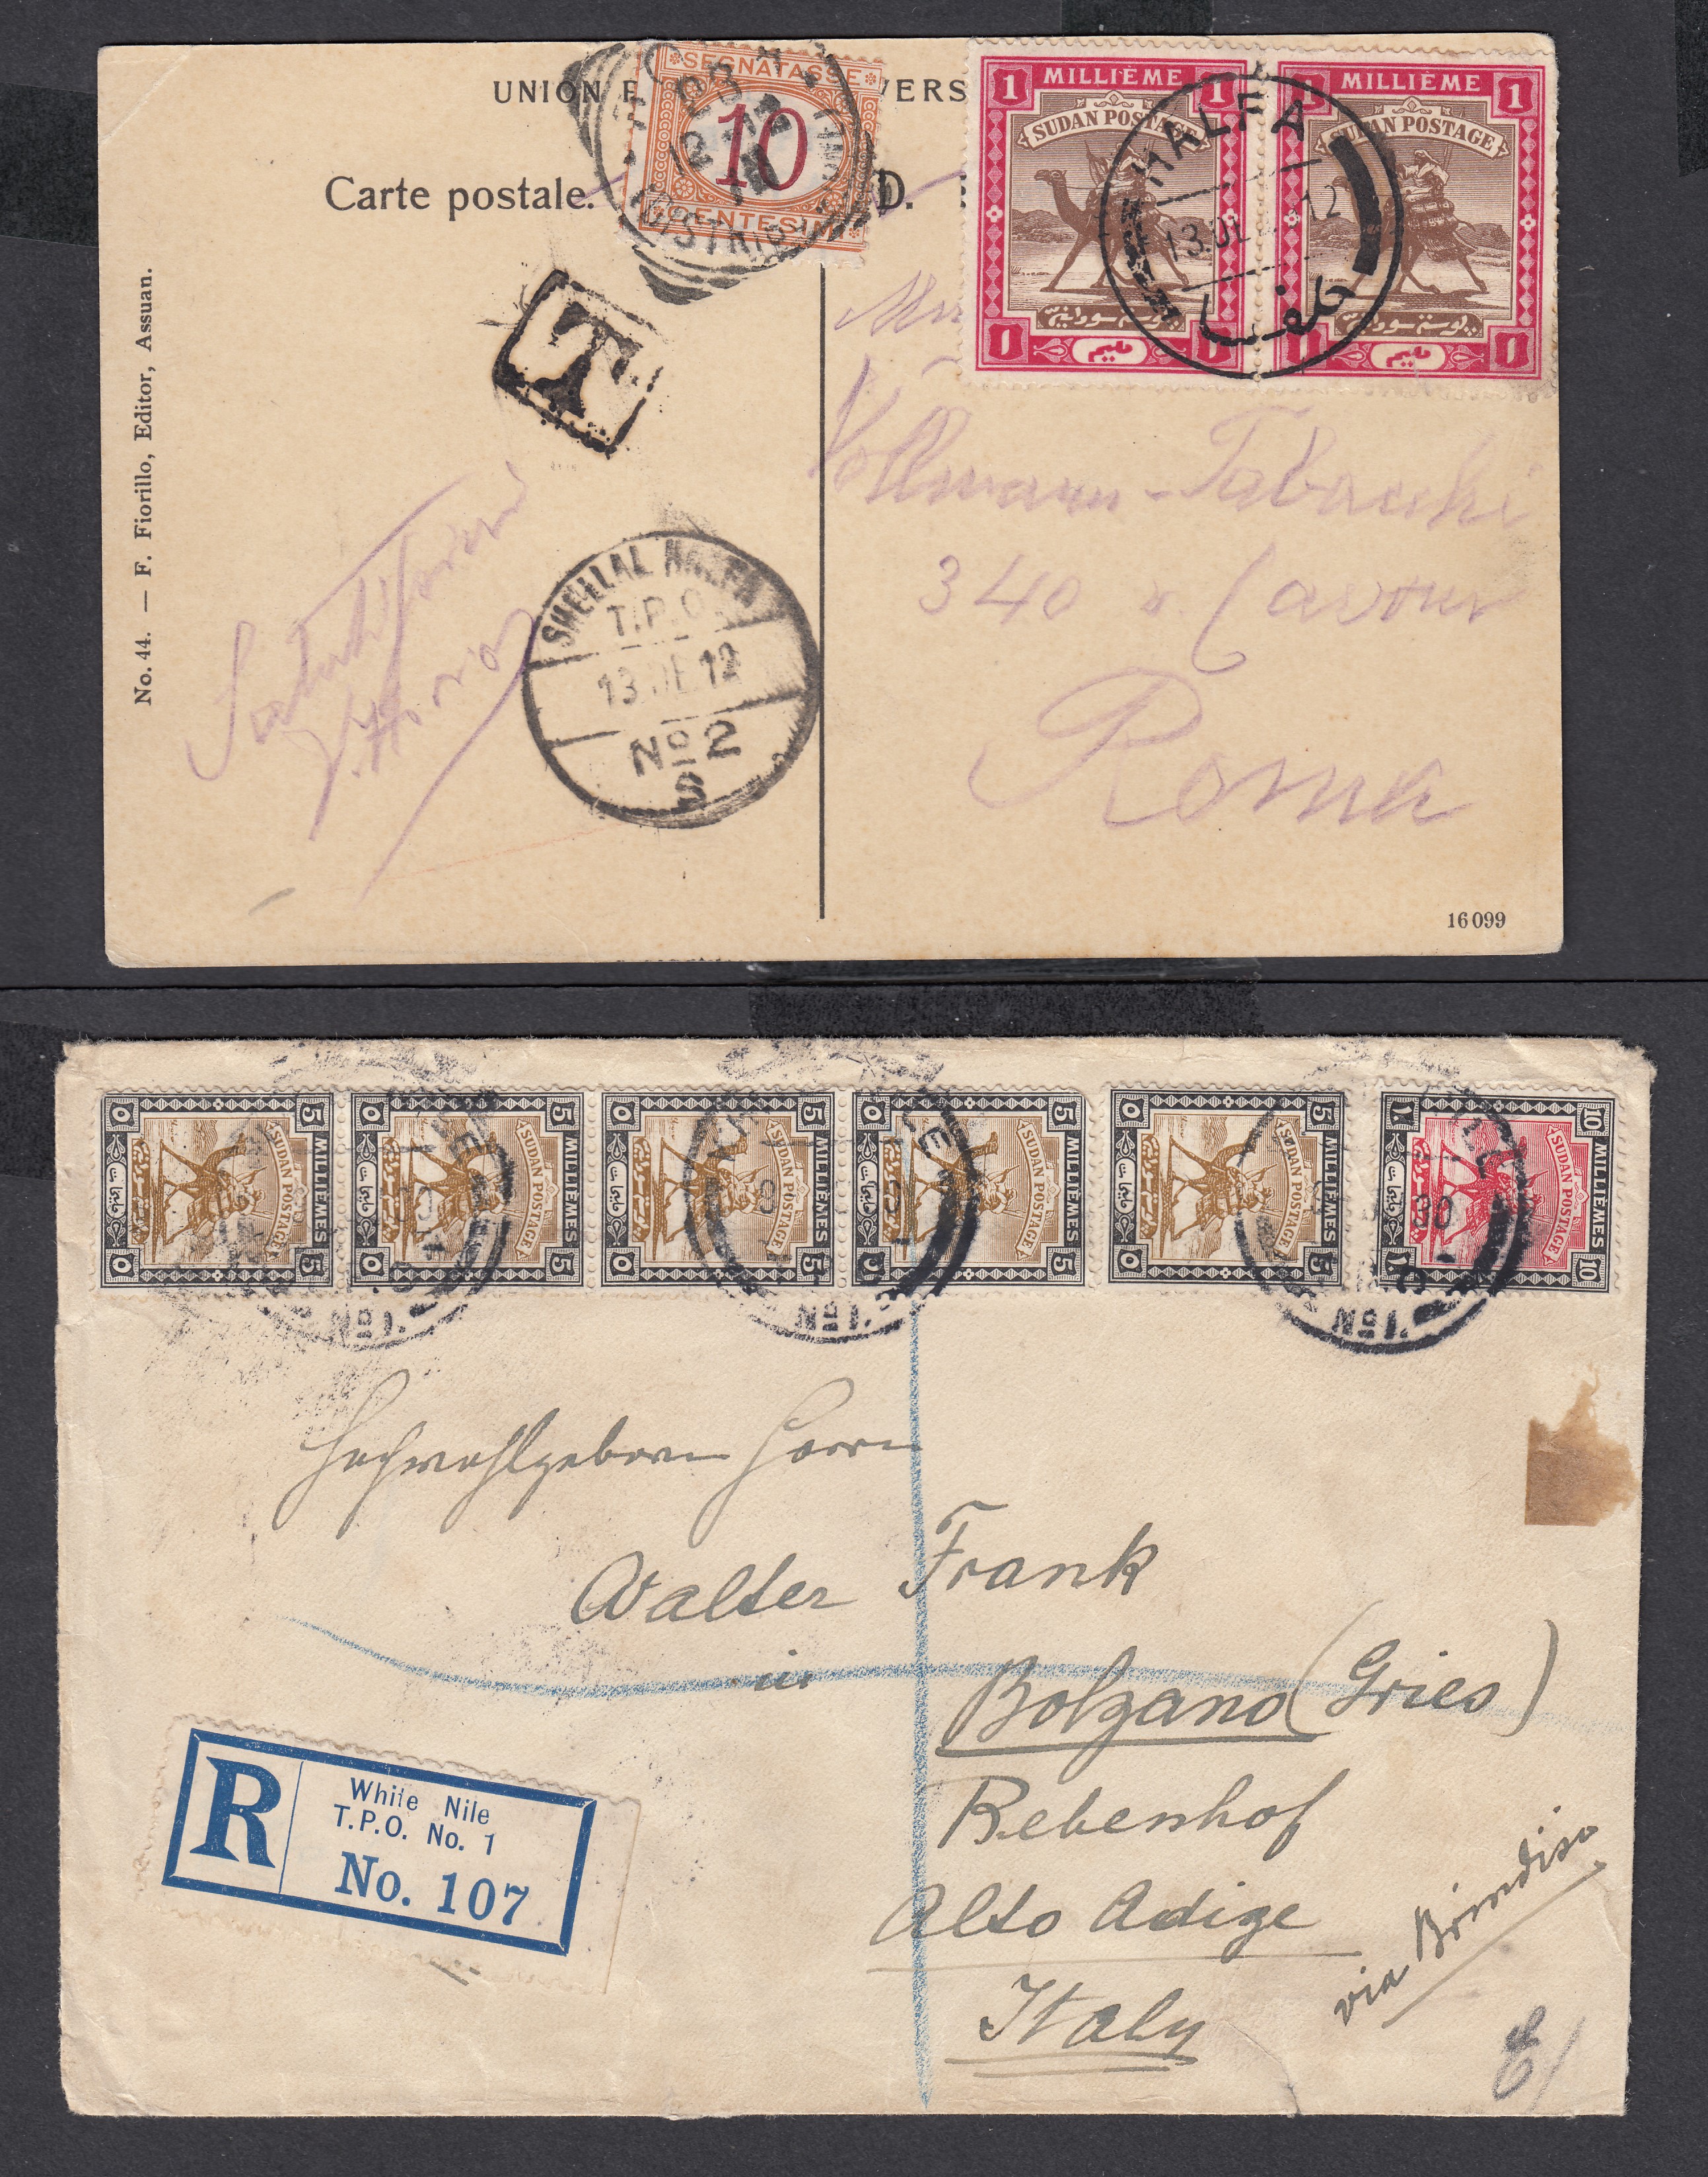 UNION
VERS
Carte postale.
D.
SEGNATASSE
10
CENTESIMI
1 MILLIÈME 1
SUDAN POSTAGE
بوسته سودانية
مليم
1 MILLIÈME 1
SUDAN POSTAGE
بوسته سودانية
مليم
HALFA
13. DE 12
حلفا
T
SHELLAL HALFA
T.P.O.
13 DE 12
No 2
No. 44. — F. Fiorillo, Editor, Assuan.
Vollmann-Tabacchi
340 v. Cavour
Roma
16099
5 MILLIEMES 5
SUDAN POSTAGE
5 MILLIEMES 5
SUDAN POSTAGE
5 MILLIEMES 5
SUDAN POSTAGE
5 MILLIEMES 5
SUDAN POSTAGE
5 MILLIEMES 5
SUDAN POSTAGE
10 MILLIEMES 10
SUDAN POSTAGE
No 1.
No 1.
No 1.
Hochwohlgeboren Herrn
Walter Frank
in
Bolzano (Gries)
Rebenhof
Alto Adige
Italy
via Brindisi
R
White Nile
T.P.O. No. 1
No. 107